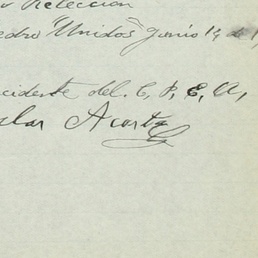 Reelección
edro Unidos junio 14 de 1
cidente del. C, P, E, A,
Acosta